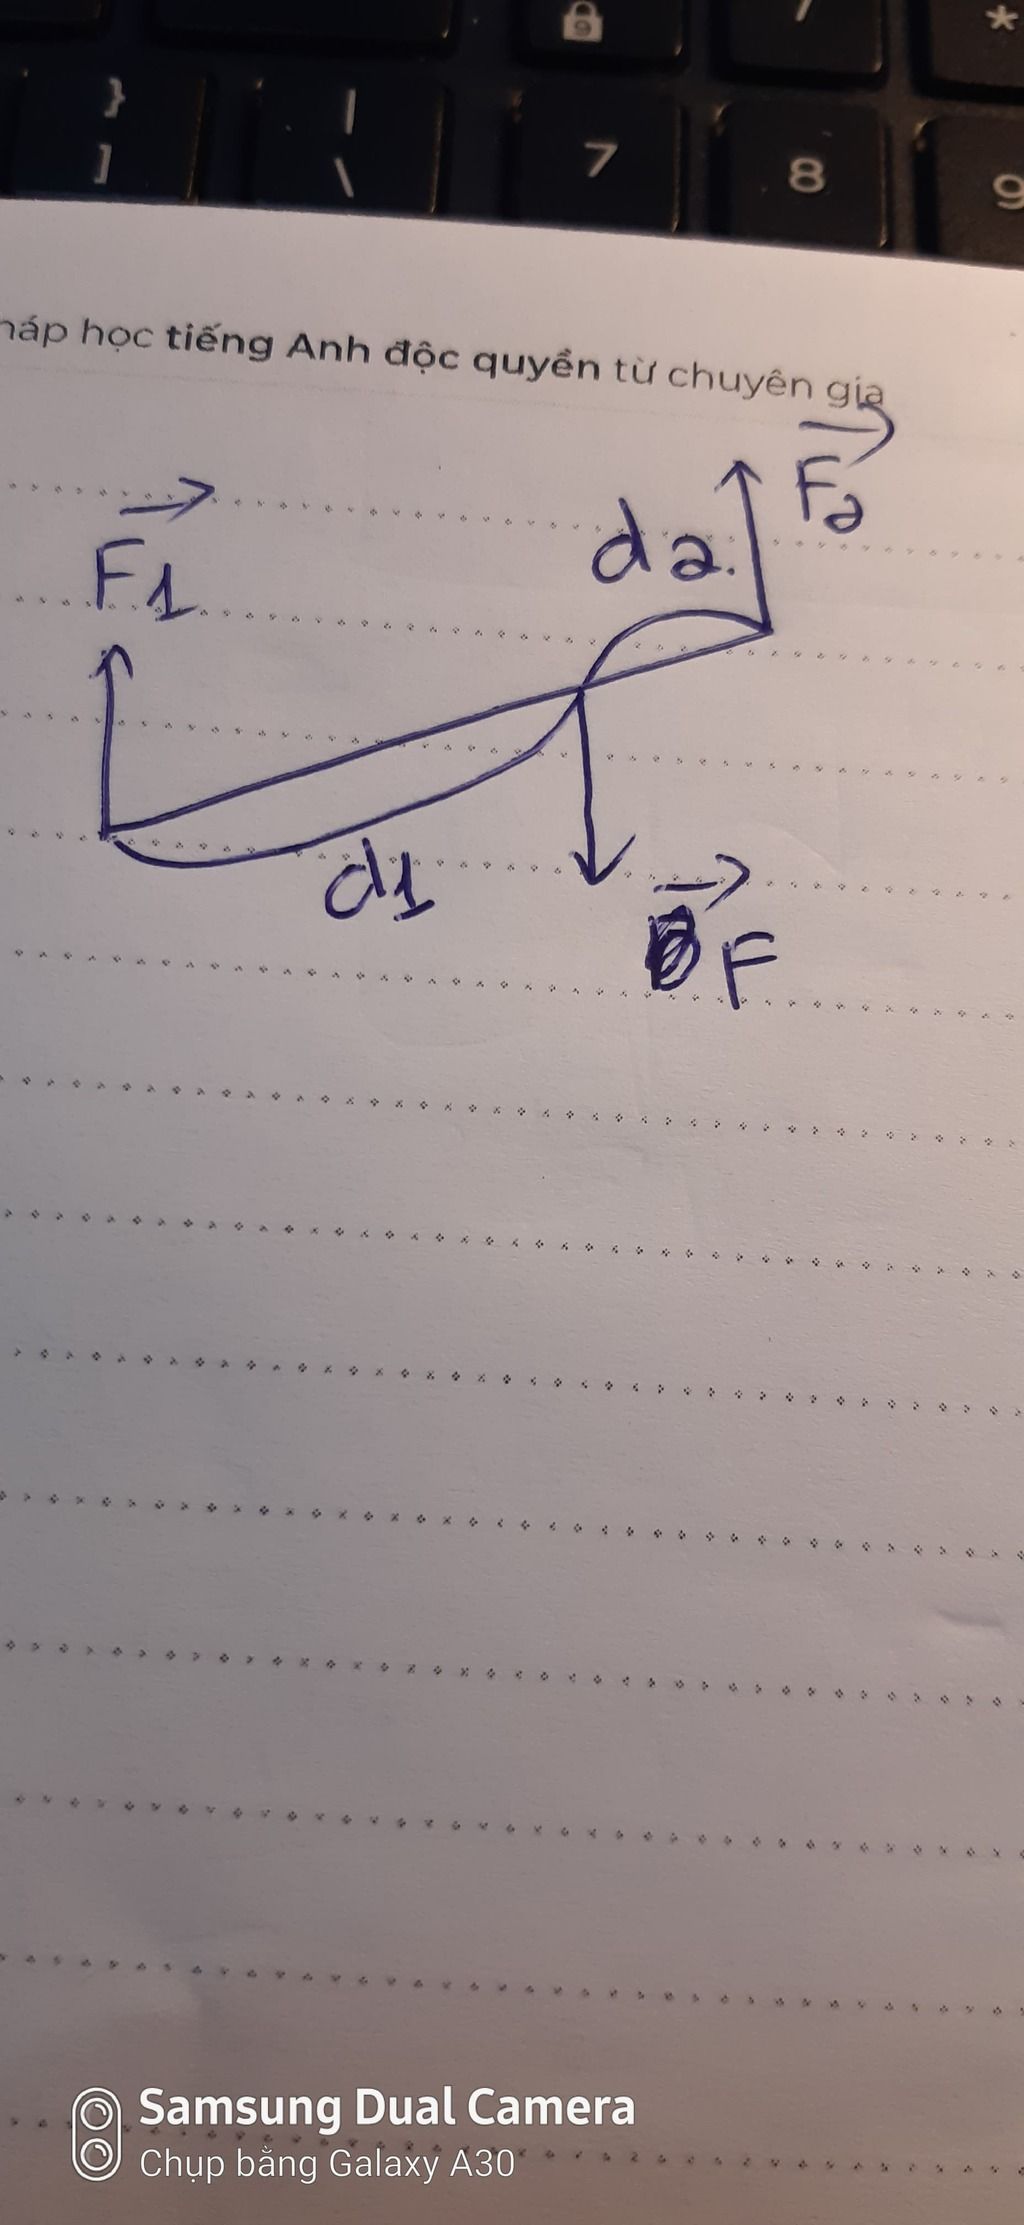 9 / *
} |
] \ 7 8 9
háp học tiếng Anh độc quyền từ chuyên gia
F2
d2.
F1
d1
F
Samsung Dual Camera
Chụp bằng Galaxy A30